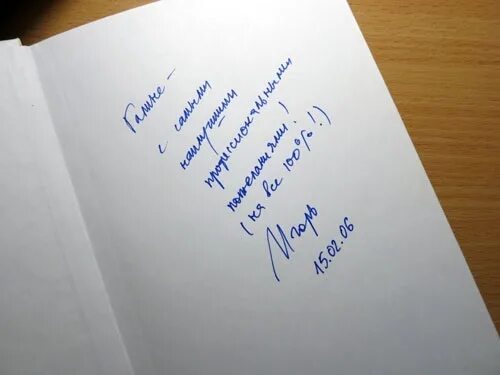 Галине –
с самыми
наилучшими
профессиональными
пожеланиями!
(на все 100%!)
Игорь
15.02.06